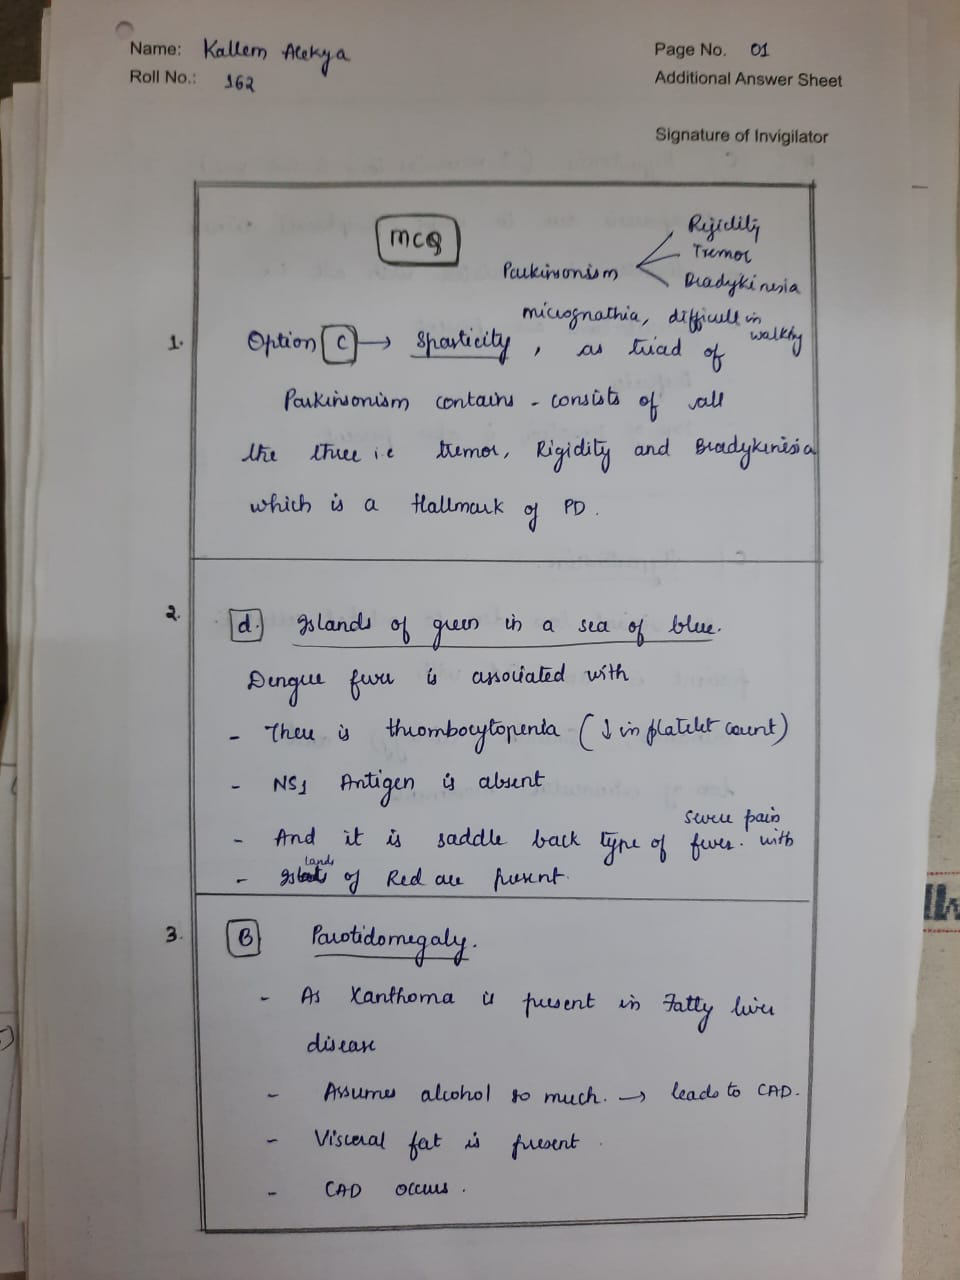 Name: Kallem Alekya
Page No. 01
Roll No.: 162
Additional Answer Sheet
Signature of Invigilator
MCQ
Parkinsonism
Rigidity
Tremor
Bradykinesia
micrognathia, difficult in walking
1. Option C → Spasticity, as triad of
Parkinsonism contains - consists of all
the three i.e tremor, Rigidity and Bradykinesia
which is a Hallmark of PD.
2. d. Islands of green in a sea of blue.
Dengue fever is associated with
- There is thrombocytopenia (↓ in platelet count)
- NS1 Antigen is absent
- And it is saddle back type of fever. with severe pain
- Islands of Red are present.
3. B Parotidomegaly.
- As Xanthoma is present in Fatty liver
disease
- Assumes alcohol so much. → leads to CAD.
- Visceral fat is present
- CAD occurs.